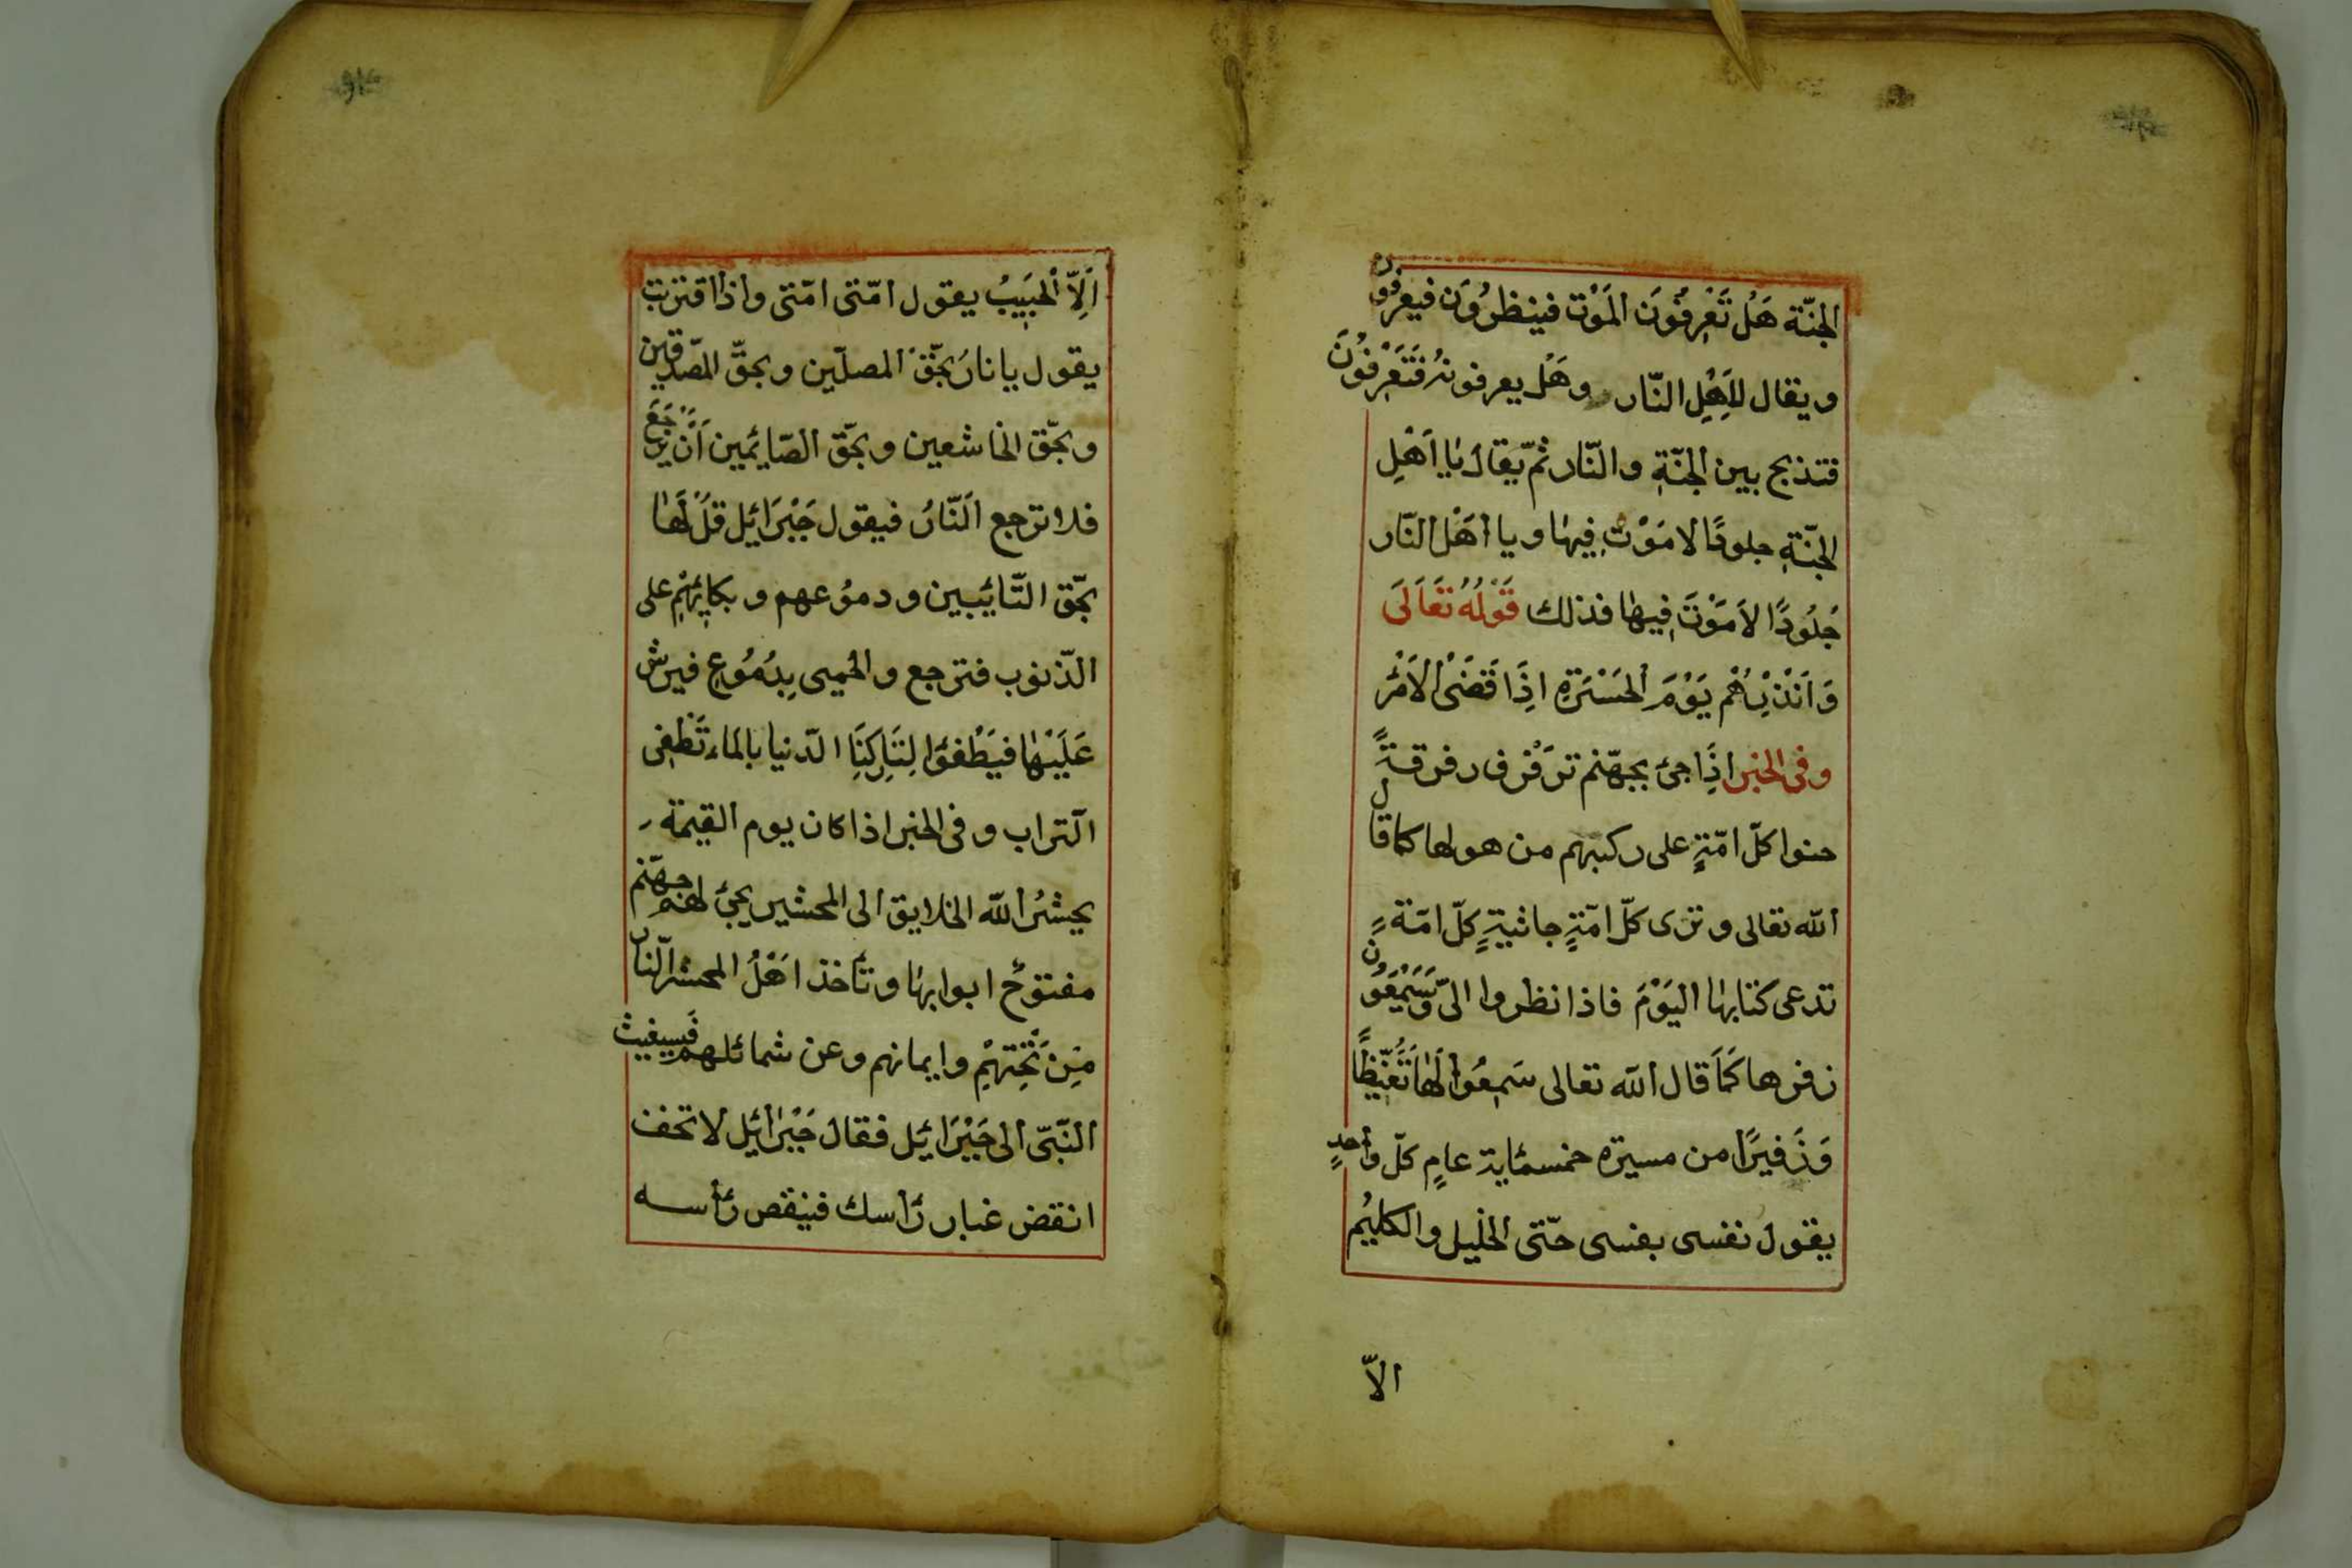 الجنّة هَلْ تَعْرِفُونَ المَوْت فينظرُوَن فيعرفُون
ويقال لِاَهْلِ النّار وهَلْ يعرفونهُ فَتَعْرِفُونَ
فتذبح بين الجنّةِ والنّار ثمّ يقال يٰا اَهْلِ
الجنّةِ جلودًا لا مَوْتَ فِيهٰا ويا اَهْلَ النّار
جُلُودًا لاَ مَوْتَ فِيهٰا فذلك قَوْلُهُ تَعَالَى
وَاَنْذِرْهُمْ يَوْمَ الْحَسْرَةِ اِذَا قَضَىْ الاَمْرُ
وفى الخبر اِذَا جئ بجهّنم تزَفْرف رفرفةً
حنوا كلّ امّةٍ على ركبهم من هولها كما قال
الله تعالى وترى كلّ امّةٍ جاثيةٍ كلّ امّةٍ
تدعى كتابهٰا اليَوْمَ فاذا نظروا الىّ وَسَمِعُون
زفرها كَمَا قال الله تعالى سَمِعُوا لَهٰا تَغَيُّظًا
وَزَفيرًا من مسيرة خمسمائة عامٍ كلّ واحدٍ
يقول نفسى بفسى حتّى الخليل والكليُم
الاّ
اَلِاّ الْحَبِيبُ يقول امّتى امّتى واذا اقتربت
يقول يا نارُ بحّقِ المصلّين وبحقّ المصّدقين
وبحّق الخاشعين وبحّق الصّائمين اَنْ يرجَعَ
فلا ترجع اَلنّارُ فيقول جَبْرَائِل قلْ لَهٰا
بحّق التّائبين ودموُعهم وبكائِهِمْ على
الذّنوب فترجع والحميى بِدُمُوعِ فيرش
عَلَيْهٰا فيَطْفئوا لِنَارِكنَا الدّنيا بالماء تَطفِى
الّتراب وفى الخبر اذا كان يوم القيمة
يحشرُ الله الخلايق الى المحشر يجئ لهم جهّنم
مفتوحٌ ابوابهٰا وتأخذ اَهْلُ المحشر الّنار
مِنْ تَحْتِهِمْ وايمانهم وعن شمائلهم فَسيغيث
النّبّى الى جَبْرَائِل فقال جَبْرائِل لا تخف
انقض غبار رَأسك فنيقص رَأسه